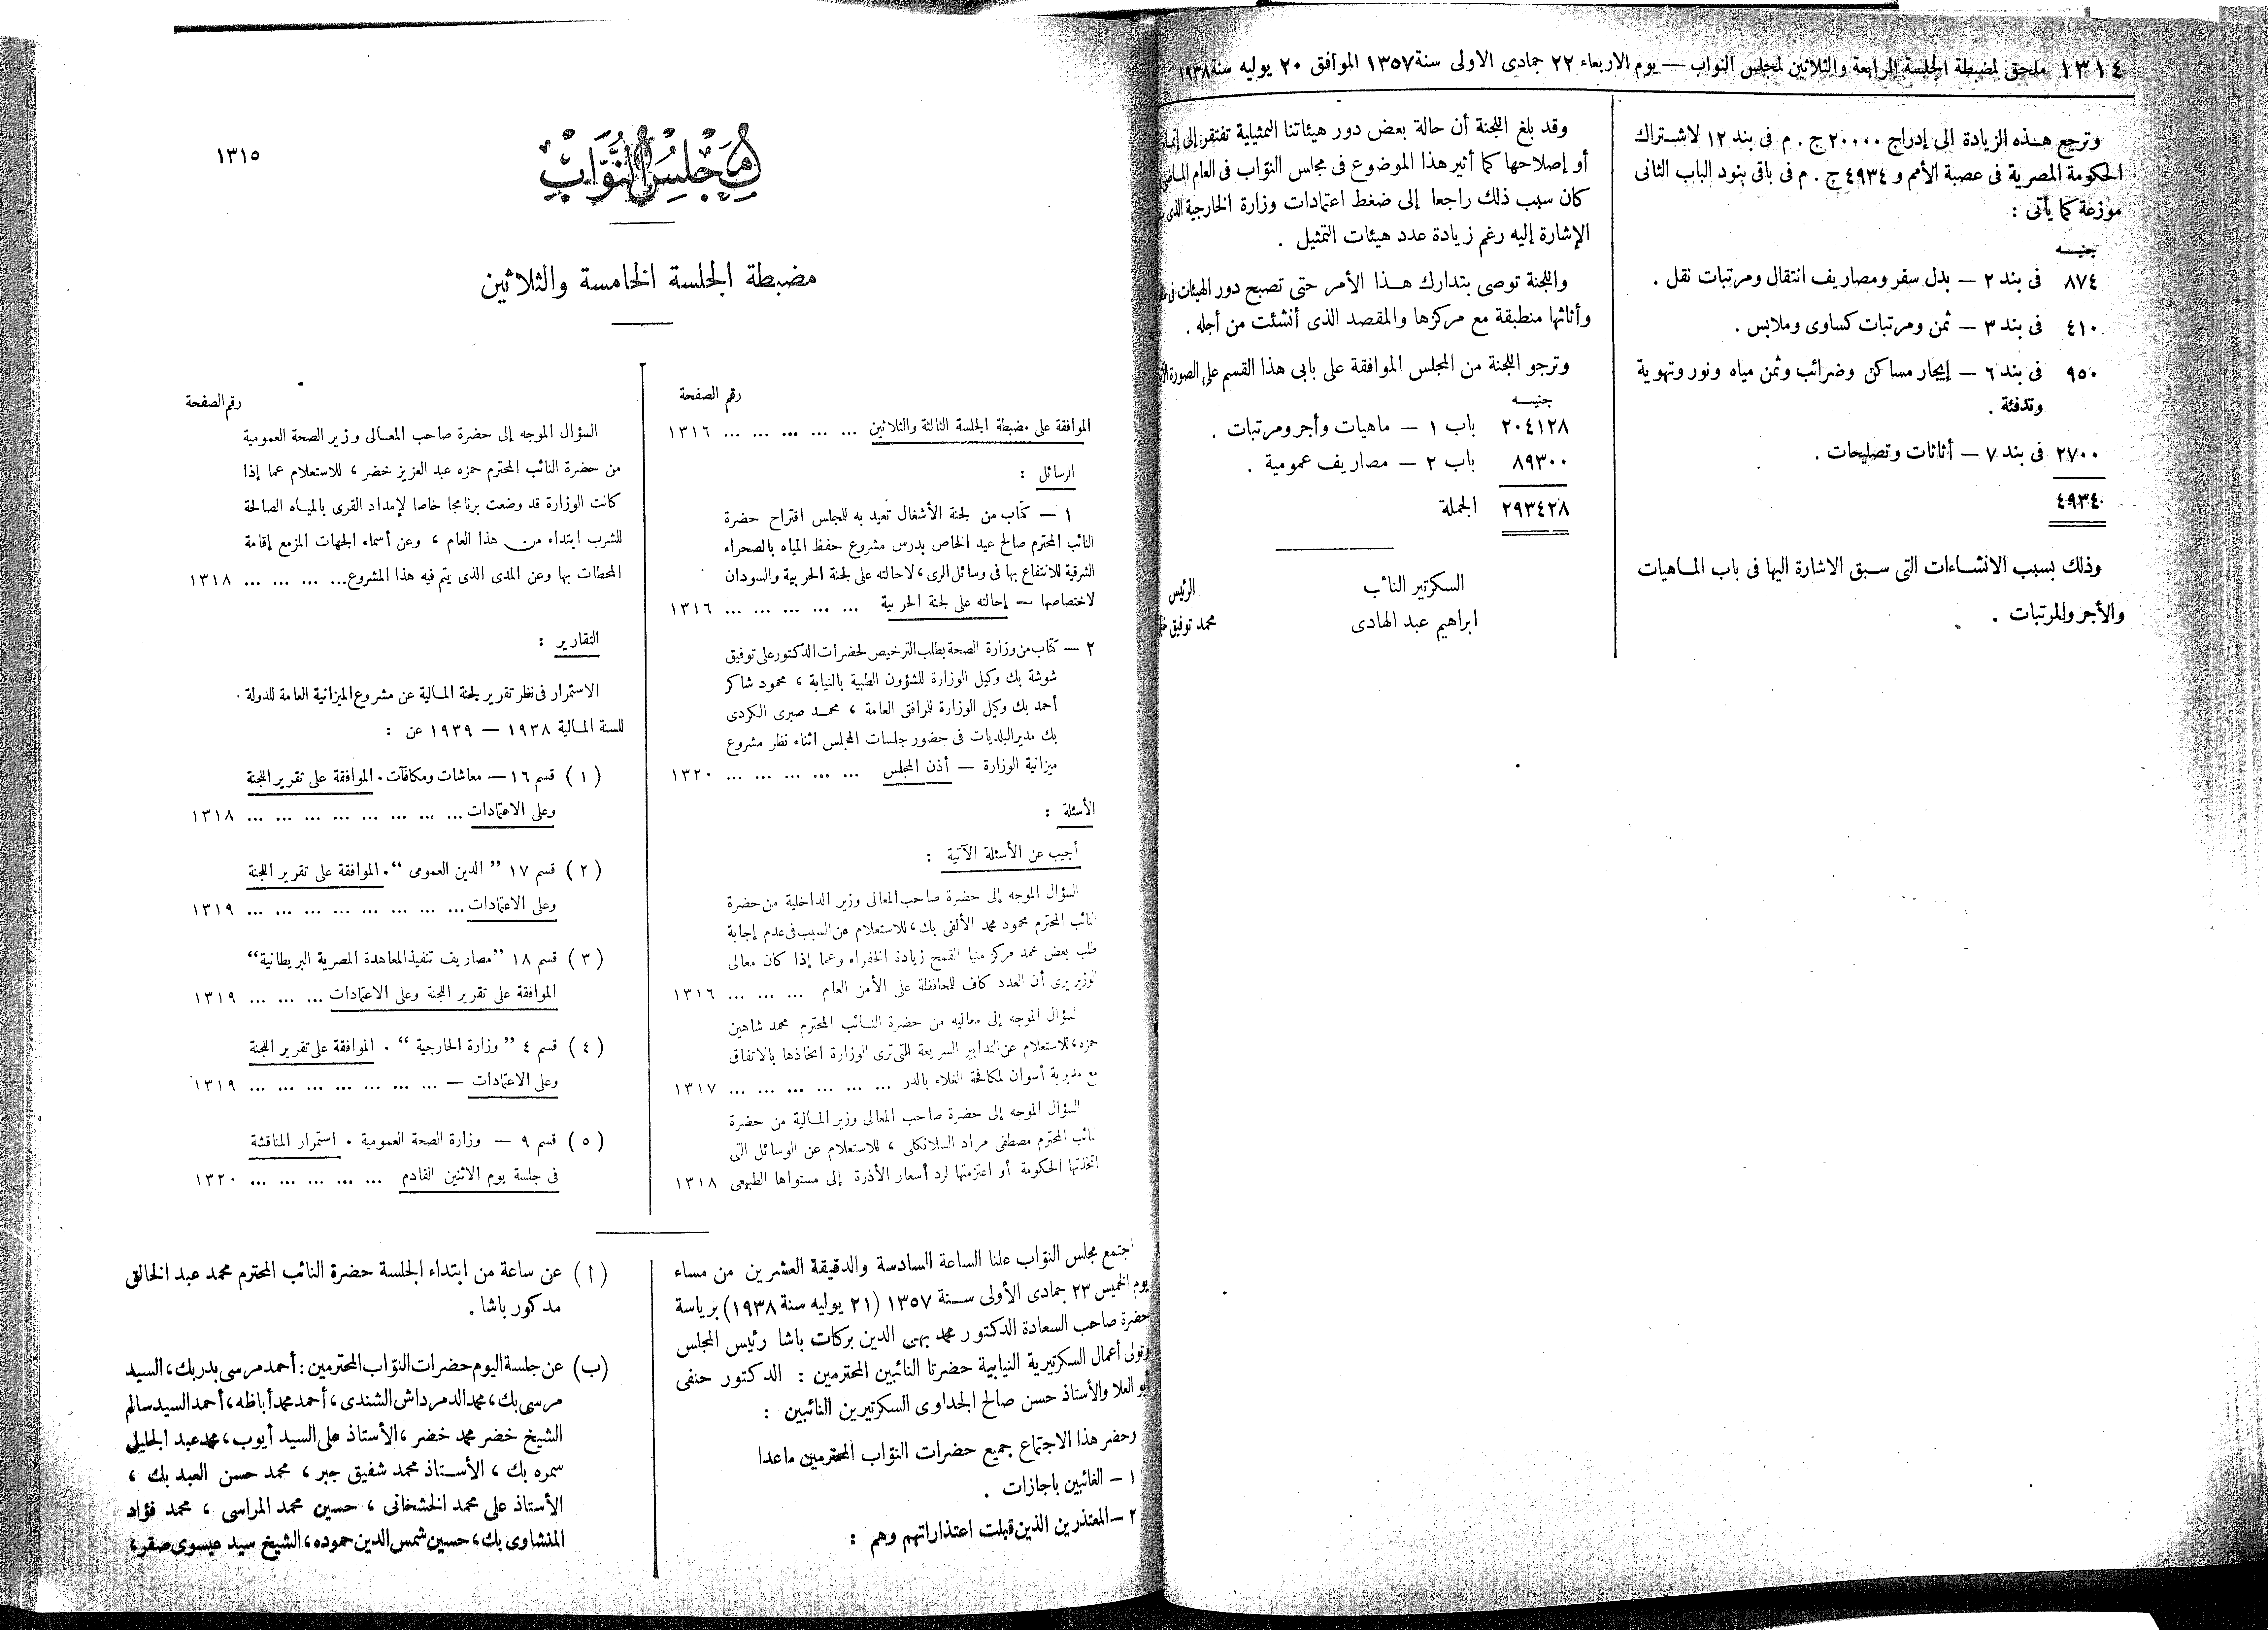 ١٣١٤ ملحق لمضبطة الجلسة الرابعة والثلاثين لمجلس النواب — يوم الاربعاء ٢٢ جمادى الاولى سنة ١٣٥٧ الموافق ٢٠ يوليه سنة ١٩٣٨
وترجع هذه الزيادة الى إدراج ٢٠٠٠٠ ج . م فى بند ١٢ لاشتراك
الحكومة المصرية فى عصبة الأمم و ٤٩٣٤ ج . م فى باقى بنود الباب الثانى
موزعة كما يأتى :
جنيه
٨٧٤ فى بند ٢ — بدل سفر ومصاريف انتقال ومرتبات نقل .
٤١٠ فى بند ٣ — ثمن ومرتبات كساوى وملابس .
٩٥٠ فى بند ٦ — إيجار مساكن وضرائب وثمن مياه ونور وتهوية
وتدفئة .
٢٧٠٠ فى بند ٧ — أثاثات وتصليحات .
٤٩٣٤
وذلك بسبب الانشاءات التى سبق الاشارة اليها فى باب الماهيات
والأجر والمرتبات .
وقد بلغ اللجنة أن حالة بعض دور هيئاتنا التمثيلية تفتقر إلى
أو إصلاحها كما أثير هذا الموضوع فى مجلس النواب فى العام الماضى
كان سبب ذلك راجعا إلى ضغط اعتمادات وزارة الخارجية الذى
الإشارة إليه رغم زيادة عدد هيئات التمثيل .
واللجنة توصى بتدارك هذا الأمر حتى تصبح دور الهيئات فى
وأثاثها منطبقة مع مركزها والمقصد الذى أنشئت من أجله .
وترجو اللجنة من المجلس الموافقة على بابى هذا القسم على الصورة
جنيه
٢٠٤١٢٨ باب ١ — ماهيات وأجر ومرتبات .
٨٩٣٠٠ باب ٢ — مصاريف عمومية .
٢٩٣٤٢٨ الجملة
السكرتير النائب الرئيس
ابراهيم عبد الهادى محمد توفيق
١٣١٥
مجلس النواب
مضبطة الجلسة الخامسة والثلاثين
رقم الصفحة
الموافقة على مضبطة الجلسة الثالثة والثلاثين ... ... ... ... ... ١٣١٦
الرسائل :
١ — كتاب من لجنة الأشغال تعيد به للمجلس اقتراح حضرة
النائب المحترم صالح عيد الخاص بدرس مشروع حفظ المياه بالصحراء
الشرقية للانتفاع بها فى وسائل الرى ، لاحالته على لجنة الحربية والسودان
لاختصاصها — إحالته على لجنة الحربية ... ... ... ... ... ١٣١٦
٢ — كتاب من وزارة الصحة بطلب الترخيص لحضرات الدكتور على توفيق
شوشة بك وكيل الوزارة للشؤون الطبية بالنيابة ، محمود شاكر
أحمد بك وكيل الوزارة للرافق العامة ، محمد صبرى الكردى
بك مدير البلديات فى حضور جلسات المجلس اثناء نظر مشروع
ميزانية الوزارة — أذن المجلس ... ... ... ... ... ١٣٢٠
الأسئلة :
أجيب عن الأسئلة الآتية :
السؤال الموجه إلى حضرة صاحب المعالى وزير الداخلية من حضرة
النائب المحترم محمود محمد الألفى بك ، للاستعلام عن السبب فى عدم إجابة
طلب بعض عمد مركز منيا القمح زيادة الخفراء وعما إذا كان معالى
الوزير يرى أن العدد كاف للمحافظة على الأمن العام ... ... ... ١٣١٦
السؤال الموجه إلى معاليه من حضرة النائب المحترم محمد شاهين
حمزه ، للاستعلام عن التدابير السريعة التى ترى الوزارة اتخاذها بالاتفاق
مع مديرية أسوان لمكافحة الغلاء بالدر ... ... ... ... ... ... ١٣١٧
السؤال الموجه إلى حضرة صاحب المعالى وزير المالية من حضرة
النائب المحترم مصطفى مراد السلانكلى ، للاستعلام عن الوسائل التى
اتخذتها الحكومة أو اعتزمتها لرد أسعار الأذرة إلى مستواها الطبيعى ١٣١٨
رقم الصفحة
السؤال الموجه إلى حضرة صاحب المعالى وزير الصحة العمومية
من حضرة النائب المحترم حمزه عبد العزيز خضر ، للاستعلام عما إذا
كانت الوزارة قد وضعت برنامجا خاصا لإمداد القرى بالمياه الصالحة
للشرب ابتداء من هذا العام ، وعن أسماء الجهات المزمع إقامة
المحطات بها وعن المدى الذى يتم فيه هذا المشروع ... ... ... ... ١٣١٨
التقارير :
الاستمرار فى نظر تقرير لجنة المالية عن مشروع الميزانية العامة للدولة
للسنة المالية ١٩٣٨ — ١٩٣٩ عن :
(١) قسم ١٦ — معاشات ومكافآت . الموافقة على تقرير اللجنة
وعلى الاعتمادات ... ... ... ... ... ... ... ... ١٣١٨
(٢) قسم ١٧ ” الدين العمومى “ . الموافقة على تقرير اللجنة
وعلى الاعتمادات ... ... ... ... ... ... ... ... ١٣١٩
(٣) قسم ١٨ ”مصاريف تنفيذ المعاهدة المصرية البريطانية“
الموافقة على تقرير اللجنة وعلى الاعتمادات ... ... ... ١٣١٩
(٤) قسم ٤ ” وزارة الخارجية “ . الموافقة على تقرير اللجنة
وعلى الاعتمادات — ... ... ... ... ... ... ... ١٣١٩
(٥) قسم ٩ — وزارة الصحة العمومية . استمرار المناقشة
فى جلسة يوم الاثنين القادم ... ... ... ... ... ١٣٢٠
اجتمع مجلس النواب علنا الساعة السادسة والدقيقة العشرين من مساء
يوم الخميس ٢٣ جمادى الأولى سنة ١٣٥٧ (٢١ يوليه سنة ١٩٣٨) برياسة
حضرة صاحب السعادة الدكتور محمد بهى الدين بركات باشا رئيس المجلس
وتولى أعمال السكرتيرية النيابية حضرتا النائبين المحترمين : الدكتور حنفى
أبو العلا والأستاذ حسن صالح الجداوى السكرتيرين النائبين :
وحضر هذا الاجتماع جميع حضرات النواب المحترمين ما عدا
١ — الغائبين باجازات .
٢ — المعتذرين الذين قبلت اعتذاراتهم وهم :
(أ) عن ساعة من ابتداء الجلسة حضرة النائب المحترم محمد عبد الخالق
مدكور باشا .
(ب) عن جلسة اليوم حضرات النواب المحترمين : أحمد مرسى بدر بك ، السيد
مرسى بك ، محمد الدمرداش الشندى ، أحمد محمد أباظه ، أحمد السيد سالم
الشيخ خضر محمد خضر ، الأستاذ على السيد أيوب ، محمد عبد الجليل
سمره بك ، الأستاذ محمد شفيق جبر ، محمد حسن العبد بك ،
الأستاذ على محمد الخشخانى ، حسين محمد المراسى ، محمد فؤاد
المنشاوى بك ، حسين شمس الدين حموده ، الشيخ سيد عيسوى صقر ،